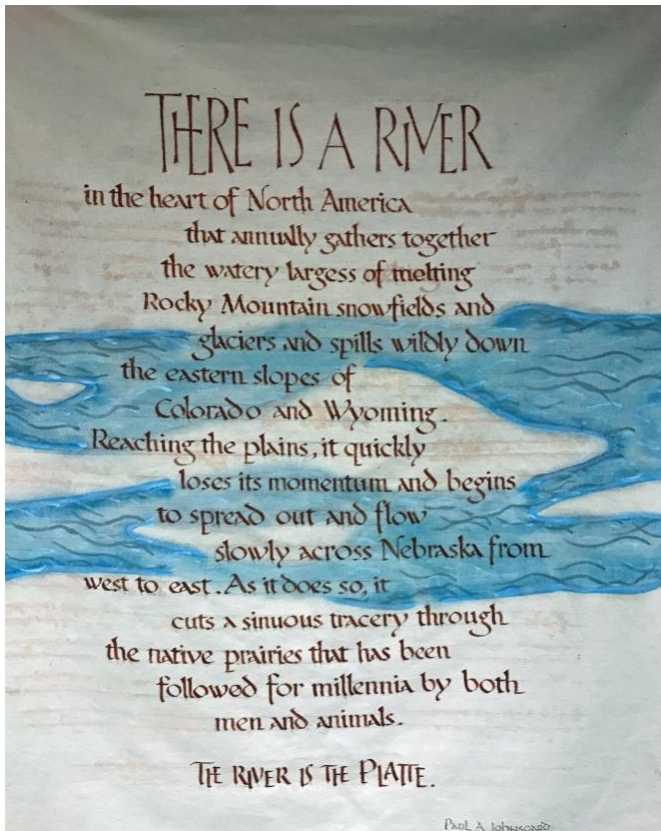 THERE IS A RIVER
in the heart of North America
that annually gathers together
the watery largess of melting
Rocky Mountain snowfields and
glaciers and spills wildly down
the eastern slopes of
Colorado and Wyoming.
Reaching the plains, it quickly
loses its momentum and begins
to spread out and flow
slowly across Nebraska from
west to east. As it does so, it
cuts a sinuous tracery through
the native prairies that has been
followed for millennia by both
men and animals.
THE RIVER IS THE PLATTE.
PAUL A JOHNSGARD